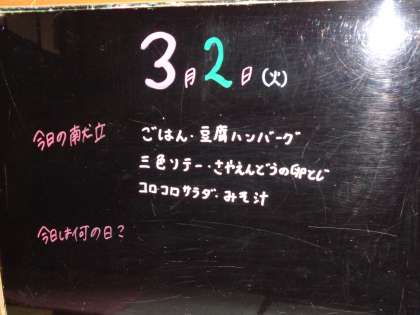 3月2日(火)
今日の献立 ごはん・豆腐ハンバーグ
三色ソテー・さやえんどうの卵とじ
コロコロサラダ・みそ汁
今日は何の日？